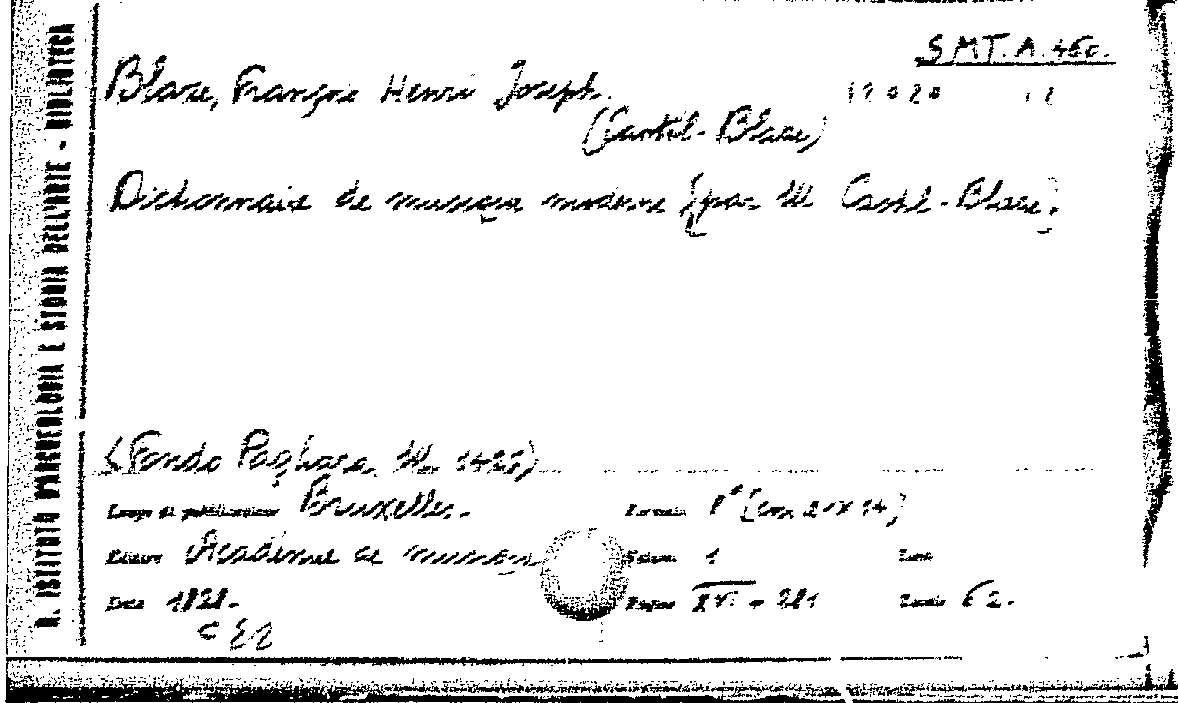 R. ISTITUTO D'ARCHEOLOGIA E STORIA DELL'ARTE - BIBLIOTECA
S.M.T.A. 460.
Blaze, François Henri Joseph.
(Castil-Blaze)
Dictionnaire de musique moderne [par M. Castil-Blaze].
(Fondo Pagliara,
Luogo di pubblicazione Bruxelles.
Formato 8° [cm 21 x 14]
Editore Académie de musique
Volume 1
Data 1828.
Pagine XVI - 281
Tavole 62.